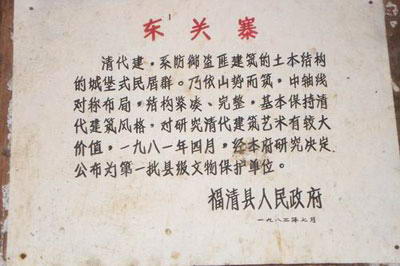 东关寨
清代建，系防御盗匪建筑的土木结构
的城堡式民居群。乃依山势而筑，中轴线
对称布局，结构紧凑、完整，基本保持清
代建筑风格，对研究清代建筑艺术有较大
价值，一九八一年四月，经本府研究决定
公布为第一批县级文物保护单位。
福清县人民政府
一九八三年七月